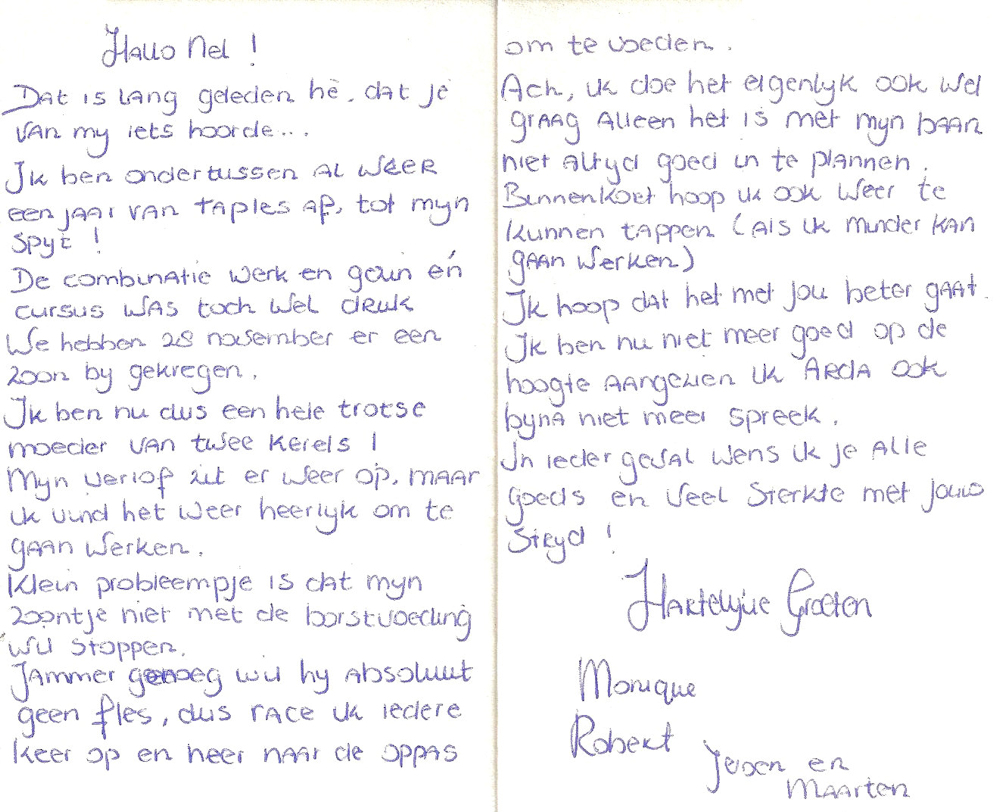 Hallo Nel !
Dat is lang geleden hè, dat je
van my iets hoorde...
Ik ben ondertussen al weer
een jaar van Taples af, tot myn
spyt !
De combinatie werk en gezin én
cursus was toch wel druk
We hebben 28 november er een
zoon by gekregen.
Ik ben nu dus een hele trotse
moeder van twee kerels !
Myn verlof zit er weer op, maar
ik vind het weer heerlyk om te
gaan werken.
Klein probleempje is dat myn
zoontje niet met de borstvoeding
wil stoppen.
Jammer genoeg wil hy absoluut
geen fles, dus race ik iedere
keer op en neer naar de oppas
om te voeden.
Ach, ik doe het eigenlyk ook wel
graag alleen het is met myn baan
niet altyd goed in te plannen.
Binnenkort hoop ik ook weer te
kunnen tappen (als ik minder kan
gaan werken)
Ik hoop dat het met jou beter gaat.
Ik ben nu niet meer goed op de
hoogte aangezien ik Arda ook
byna niet meer spreek.
In ieder geval wens ik je alle
goeds en veel sterkte met jouw
stryd !
Hartelyke Groeten
Monique
Robert
Jeroen en
Maarten